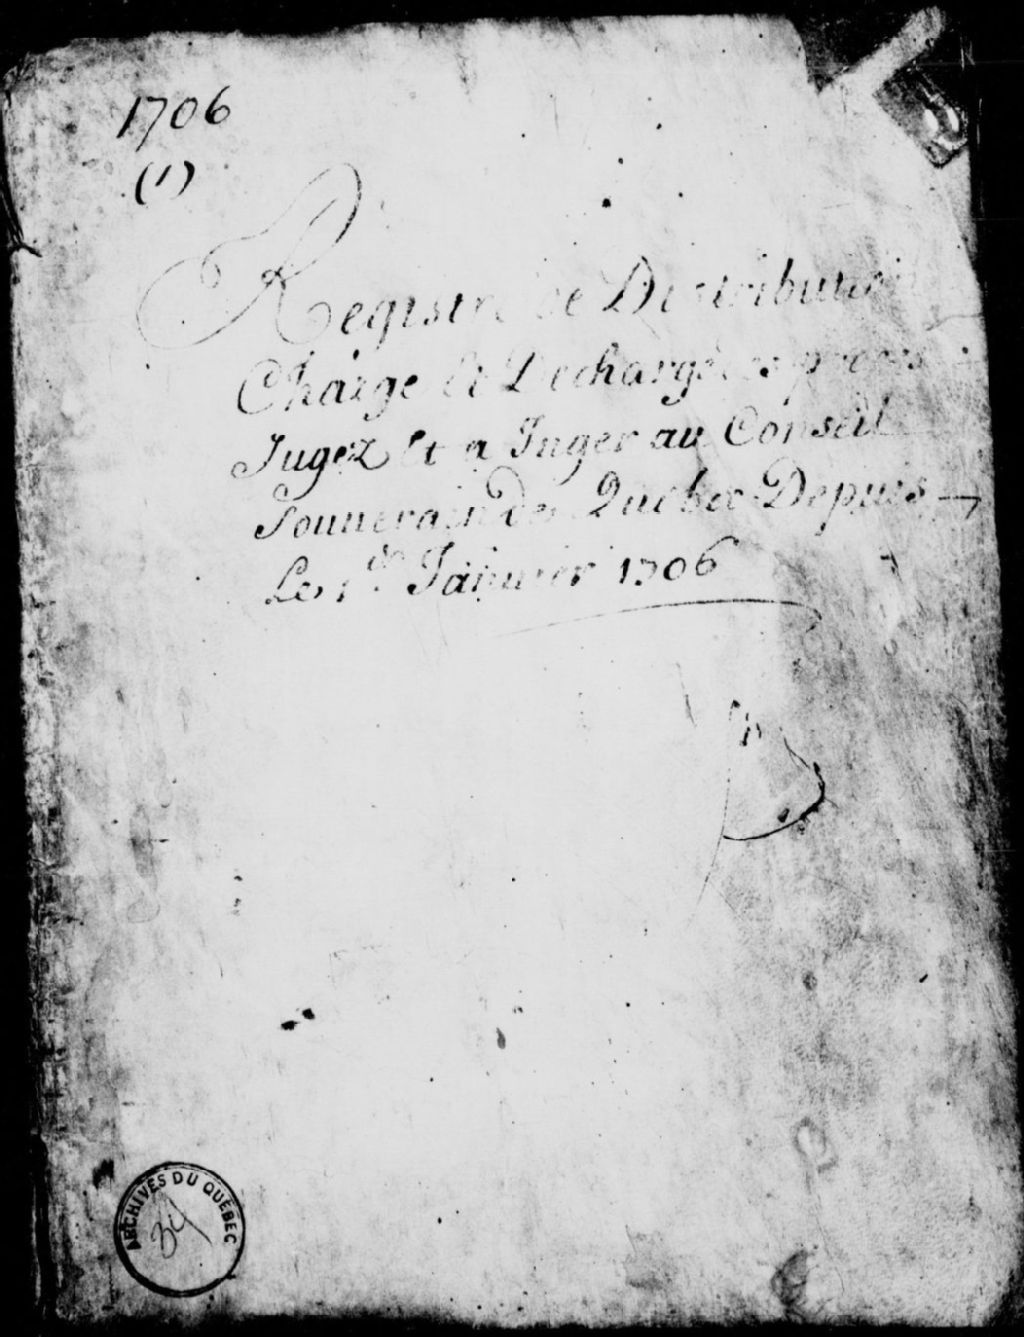 1706
(1)
Registre de Distribution
Charge Et Decharge des proces
Jugez Et a Juger au Conseil
Souuerain de Quebec Depuis
Le 1er Januier 1706
ARCHIVES DU QUÉBEC